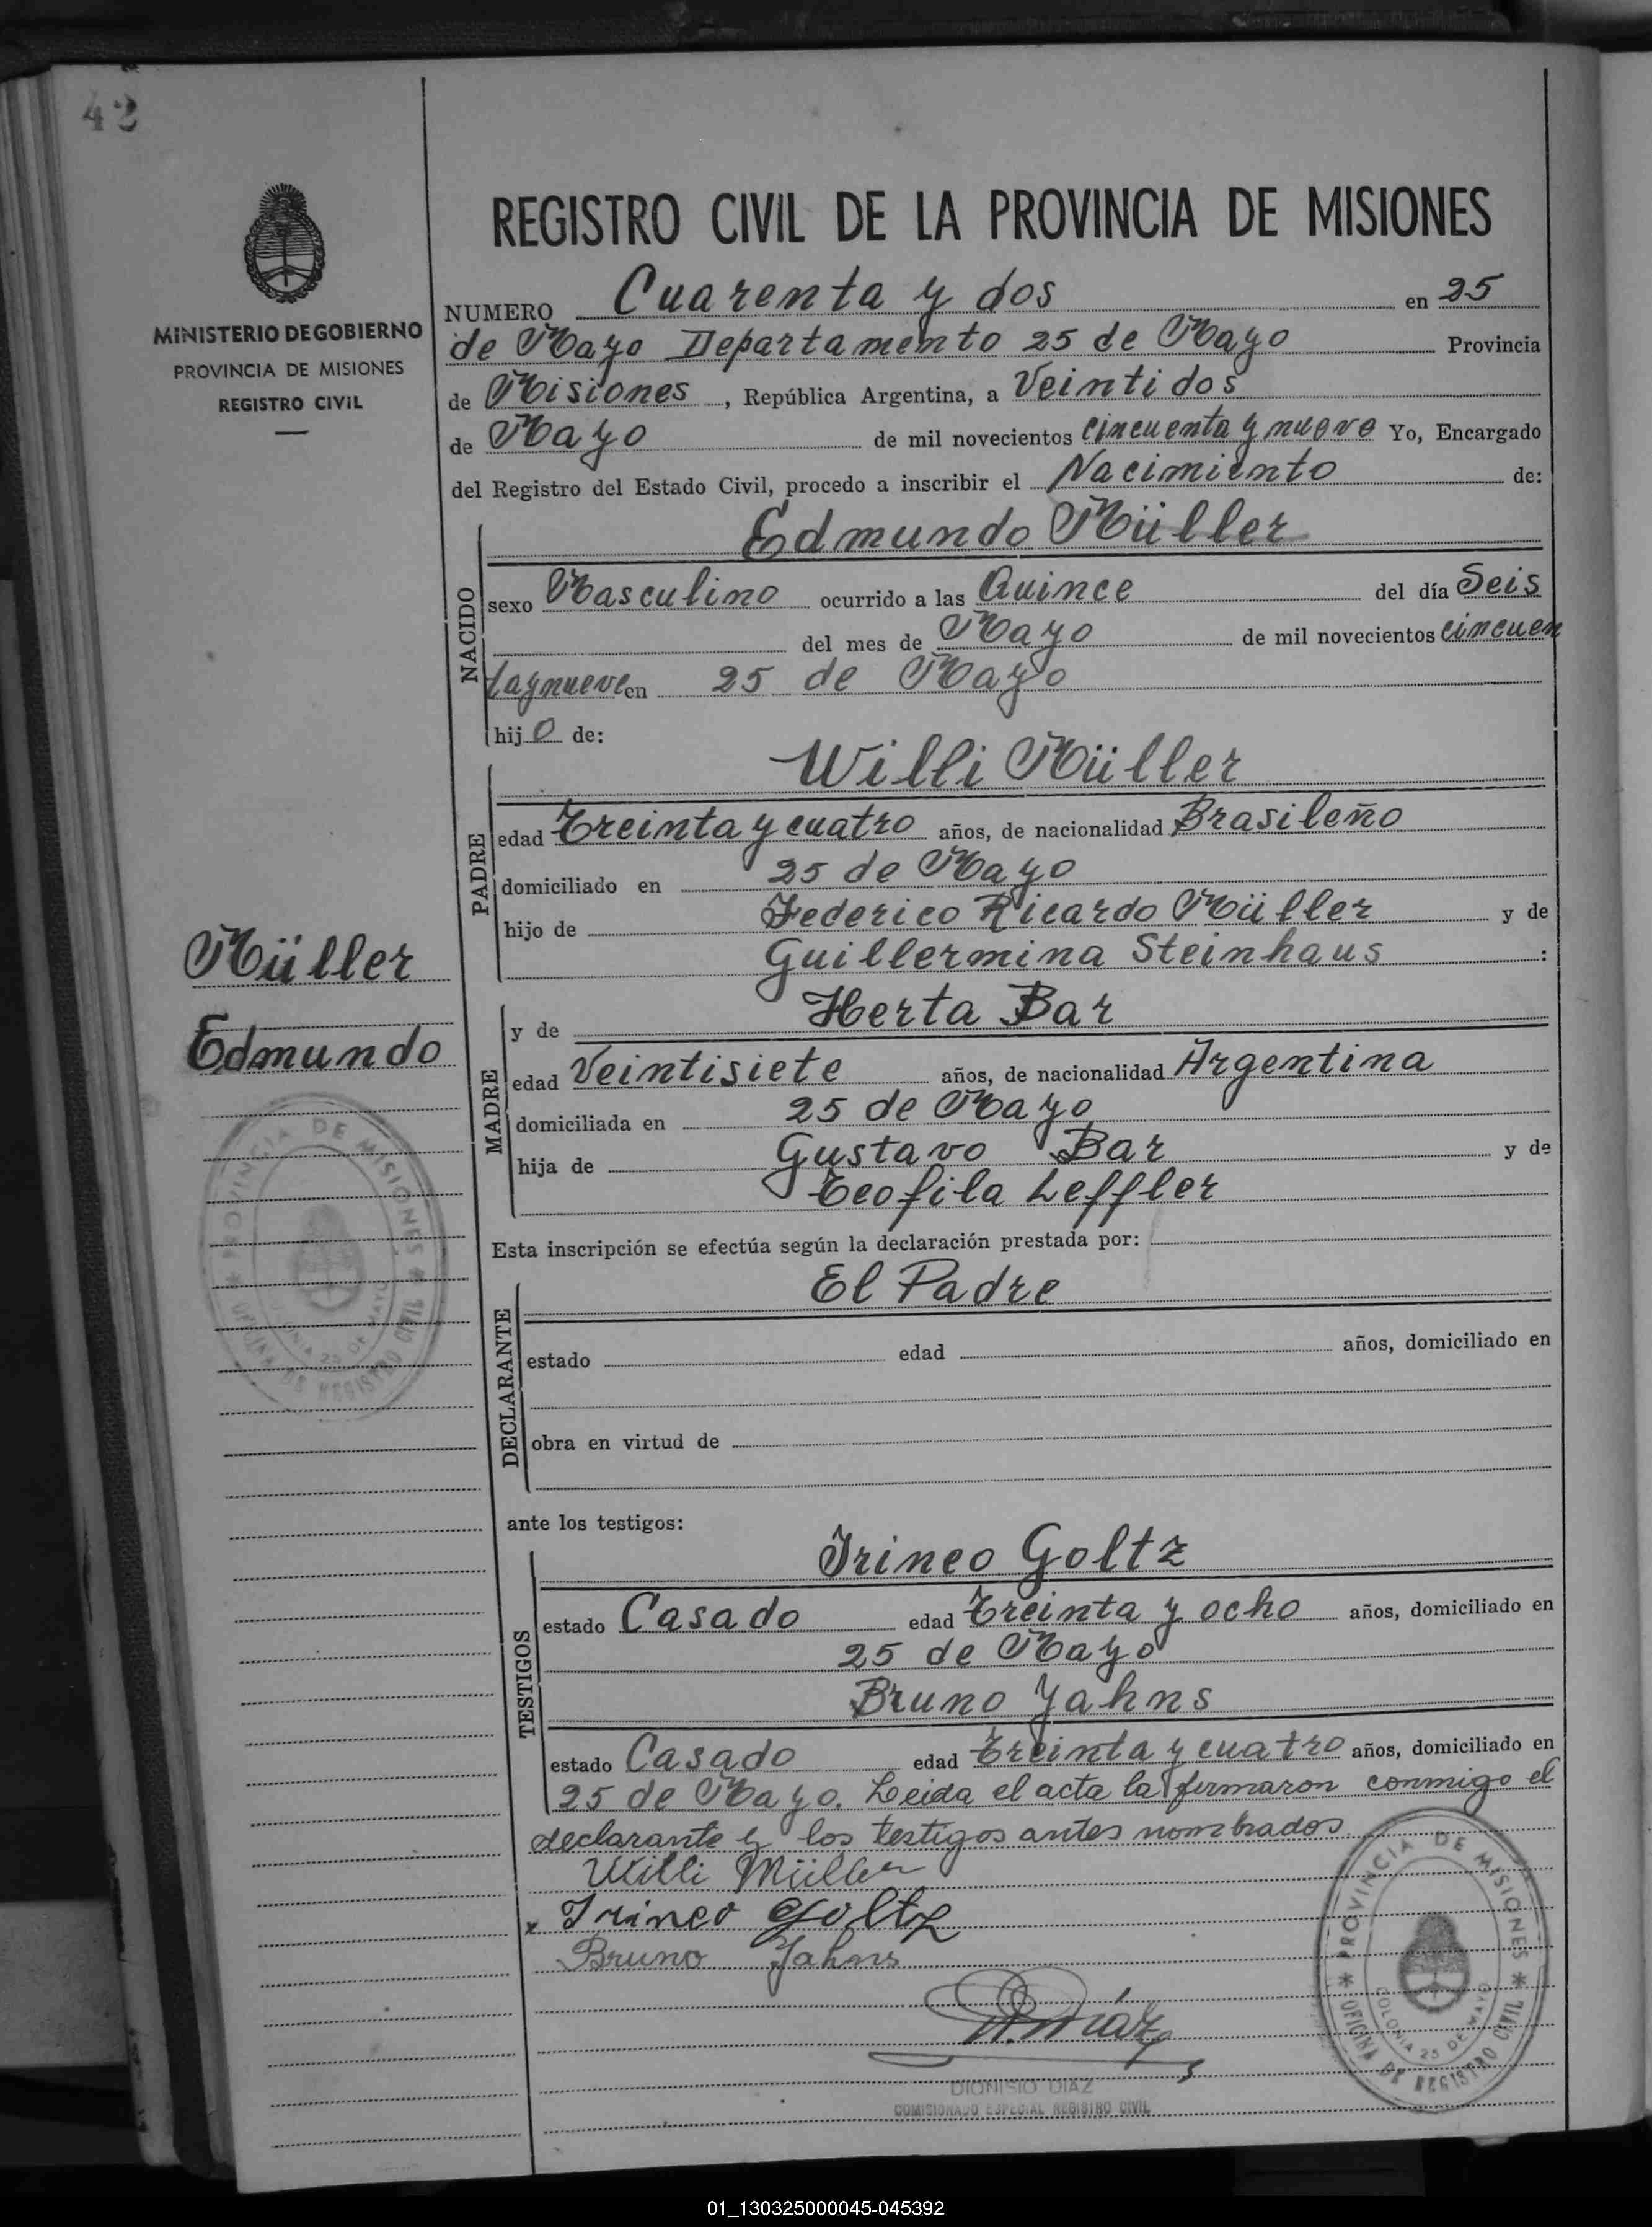 42
MINISTERIO DE GOBIERNO
PROVINCIA DE MISIONES
REGISTRO CIVIL
REGISTRO CIVIL DE LA PROVINCIA DE MISIONES
NUMERO Cuarenta y dos en 25
de Mayo Departamento 25 de Mayo Provincia
de Misiones, República Argentina, a Veintidos
de Mayo de mil novecientos cincuenta y nueve Yo, Encargado
del Registro del Estado Civil, procedo a inscribir el Nacimiento de:
NACIDO
Edmundo Müller
sexo Masculino ocurrido a las Quince del día Seis
del mes de Mayo de mil novecientos cincuen
ta y nueve en 25 de Mayo
hijo de:
PADRE
Willi Müller
edad Treinta y cuatro años, de nacionalidad Brasileño
domiciliado en 25 de Mayo
hijo de Federico Ricardo Müller y de
Guillermina Steinhaus :
Müller
Edmundo
MADRE
y de Herta Bar
edad Veintisiete años, de nacionalidad Argentina
domiciliada en 25 de Mayo
hija de Gustavo Bar y de
Teofila Leffler
PROVINCIA DE MISIONES
OFICINA DE REGISTRO CIVIL
COLONIA 25 DE MAYO
Esta inscripción se efectúa según la declaración prestada por:
DECLARANTE
El Padre
estado edad años, domiciliado en
obra en virtud de
ante los testigos:
TESTIGOS
Irineo Goltz
estado Casado edad Treinta y ocho años, domiciliado en
25 de Mayo
Bruno Yahns
estado Casado edad Treinta y cuatro años, domiciliado en
25 de Mayo. Leida el acta la firmaron conmigo el
declarante y los testigos antes nombrados
Willi Müller
x Irineo Goltz
Bruno Jahns
D. Díaz
DIONISIO DIAZ
COMISIONADO ESPECIAL REGISTRO CIVIL
PROVINCIA DE MISIONES
OFICINA DE REGISTRO CIVIL
COLONIA 25 DE MAYO
01_130325000045-045392